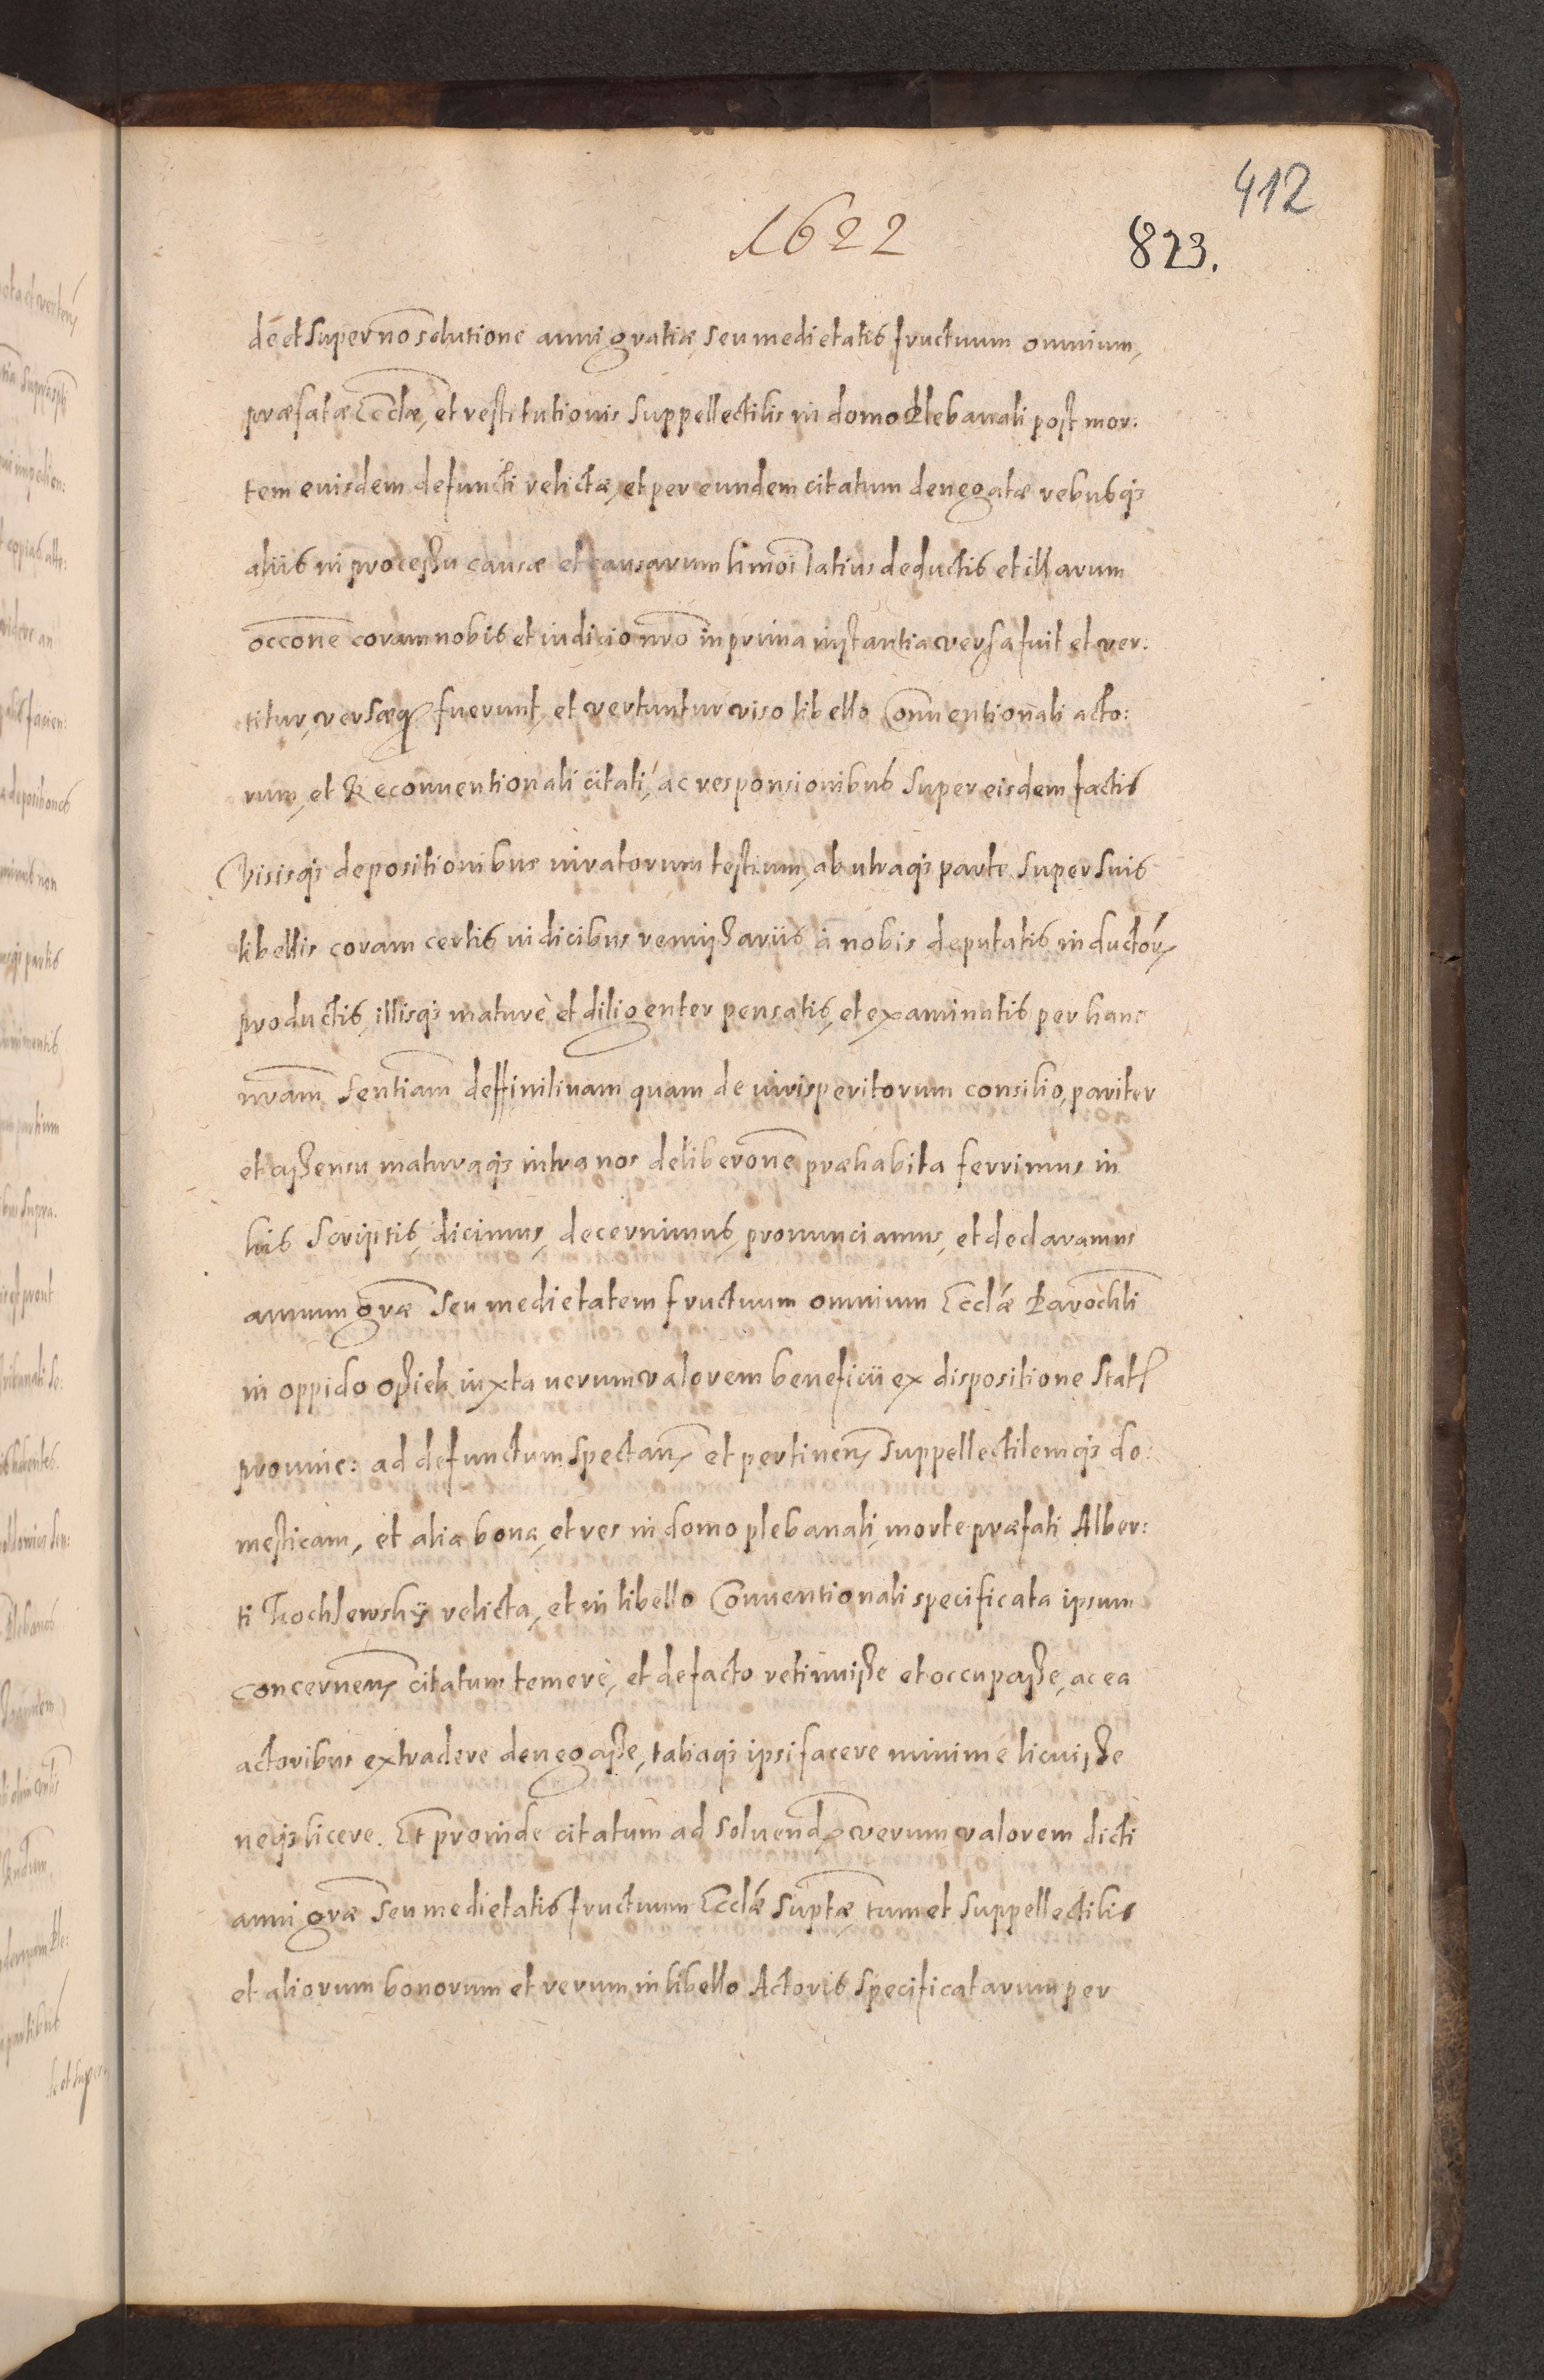 412
1622
823.
de et super no solutione anni gratiæ, seu medietatis fructuum omnium,
præfatæ Eccłæ, et restitutionis suppellectilis in domo Plebanali post mor:
tem euisdem defuncti relictæ, et per eundem citatum denegatæ rebusq3
aliis in processu causæ et causarum hmōi latius deductis et illarum
occōne coram nobis et iudicio nr̄o in prima instantia versa fuit et ver:
titur, versæq3 fuerunt, et vertuntur viso libello Conventionali acto:
rum, et Reconventionali citati, ac responsionibus super eisdem factis
Visisq3 depositionibus iuratorum testium, ab utraq3 parte super suis
libellis coram certis iudicibus remissariis à nobis deputatis inductor
productis, illisq3 maturè et diligenter pensatis, et examinatis per hanc
nr̄am sentiam deffinitiuam quam de iurisperitorum consilio, pariter
et assensu maturaq3 intra nos deliberōne præhabita ferrimus in
his scriptis, dicimus, decernimus, pronunciamus, et declaramus
annum grãæ seu medietatem fructuum omnium Ecclæ Parochli
in oppido Osiek iuxta uerum valorem beneficii ex dispositione Stat
prouinc: ad defunctum spectan et pertinen suppellectilemq3 do:
mesticam, et alia bona, et res in domo plebanali, morte præfati Alber:
ti Kochlewskÿ relicta, et in libello Conventionali specificata ipsum
concernen citatum temerè, et defacto retinuisse et occupasse, ac ea
actoribus extradere denegasse, taliaq3 ipsi facere minimè licuisse
neq3 licere. Et proinde citatum ad soluend verum valorem dicti
anni grãæ seu medietatis fructuum Ecclæ suptæ, tum et suppellectilis
et aliorum bonorum et rerum in libello Actoris specificatarum per